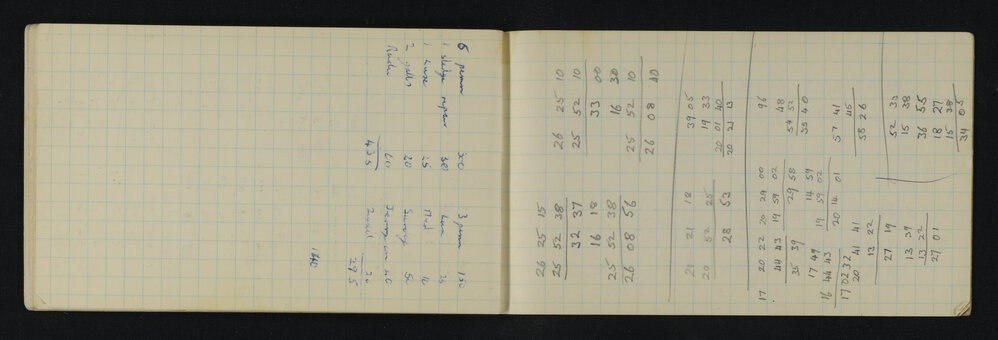 6 300 3 150
1 sledge repair 30
1 Luxe 25
2 galls 20 Survey 50
Radio 60 40
435 20
295
26 25 15 26 25 10
25 52 38 25 52 10
32 37 33 00
16 18 16 30
25 52 38 25 52 10
26 08 56 26 08 40
21 21 18 39 05
20 52 25 19 33
28 53 20 01 40
20 21 13
17 20 22 20 29 00 96
44 43 19 59 02 48
35 39 29 58 54 52
17 49 14 59 55 40
16 44 43 19 59 02
17 02 32 20 14 01 57 41
20 41 41 45
13 22 58 26
27 19 52 33
13 39 15 38
13 22 36 55
27 01 18 27
15 38
34 05